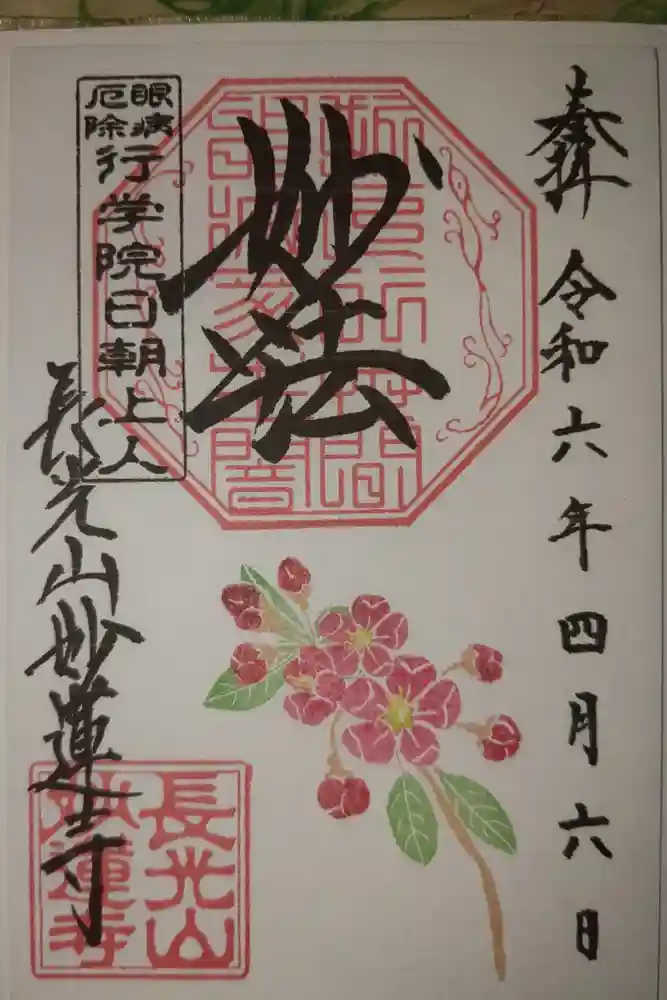 奉拝 令和六年四月六日
妙法
眼病
厄除
行学院日朝上人
長光山妙蓮寺
長光山
妙蓮寺